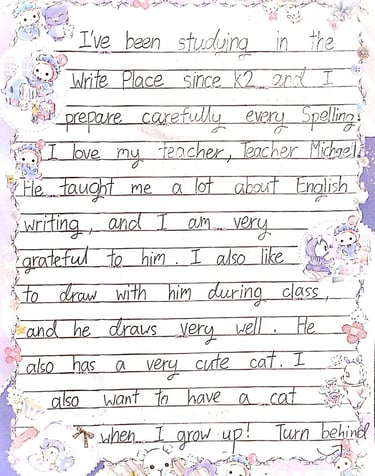 I've been studying in the
Write Place since K2 and I
prepare carefully every Spelling.
I love my teacher, Teacher Michael.
He taught me a lot about English
writing, and I am very
grateful to him. I also like
to draw with him during class,
and he draws very well. He
also has a very cute cat. I
also want to have a cat
when I grow up! Turn behind